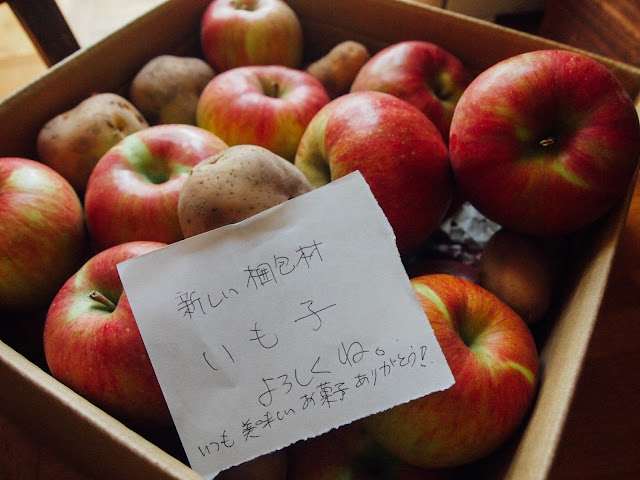 新しい梱包材
いも子
よろしくね。
いつも美味しいお菓子ありがとう!